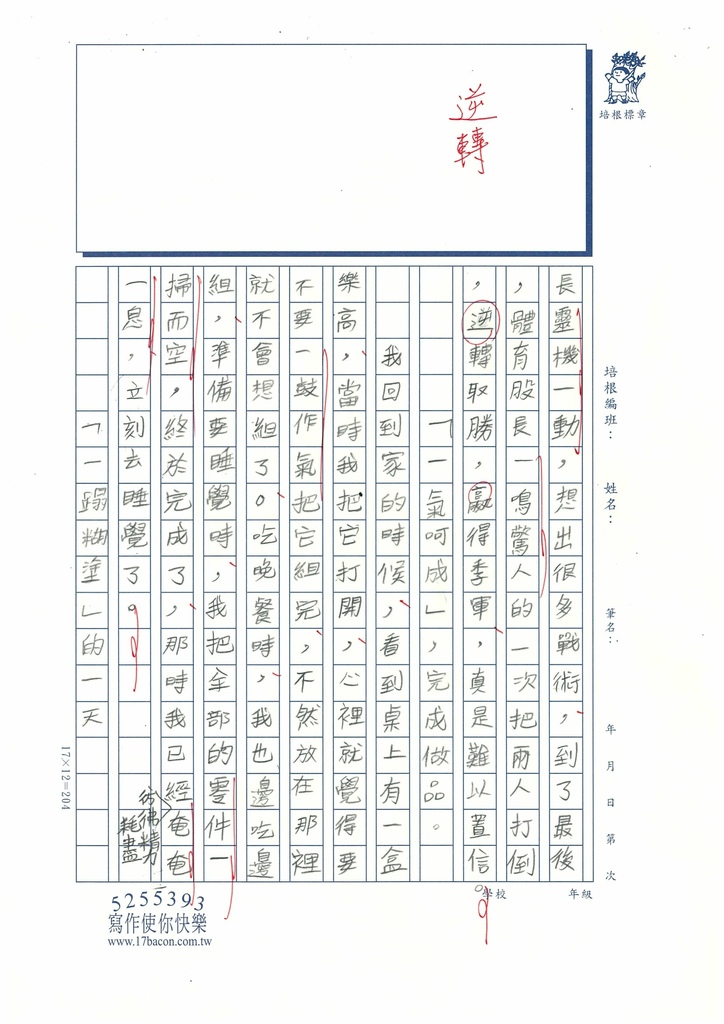 逆轉
培根標章
長靈機一動,想出很多戰術,到了最後
,體育股長一鳴驚人的一次把兩人打倒
,逆轉取勝,贏得季軍,真是難以置信。
「一氣呵成」,完成做品。
我回到家的時候,看到桌上有一盒
樂高,當時我把它打開,心裡就覺得要
不要一鼓作氣把它組完,不然放在那裡
就不會想組了。吃晚餐時,我也邊吃邊
組,準備要睡覺時,我把全部的零件一
掃而空,終於完成了,那時我已經奄奄
彷彿精力
耗盡
一息,立刻去睡覺了。
「一蹋糊塗」的一天
培根編班: 姓名: 筆名: 年 月 日 第 次
學校 年級
17×12=204
5255393
寫作使你快樂
www.17bacon.com.tw